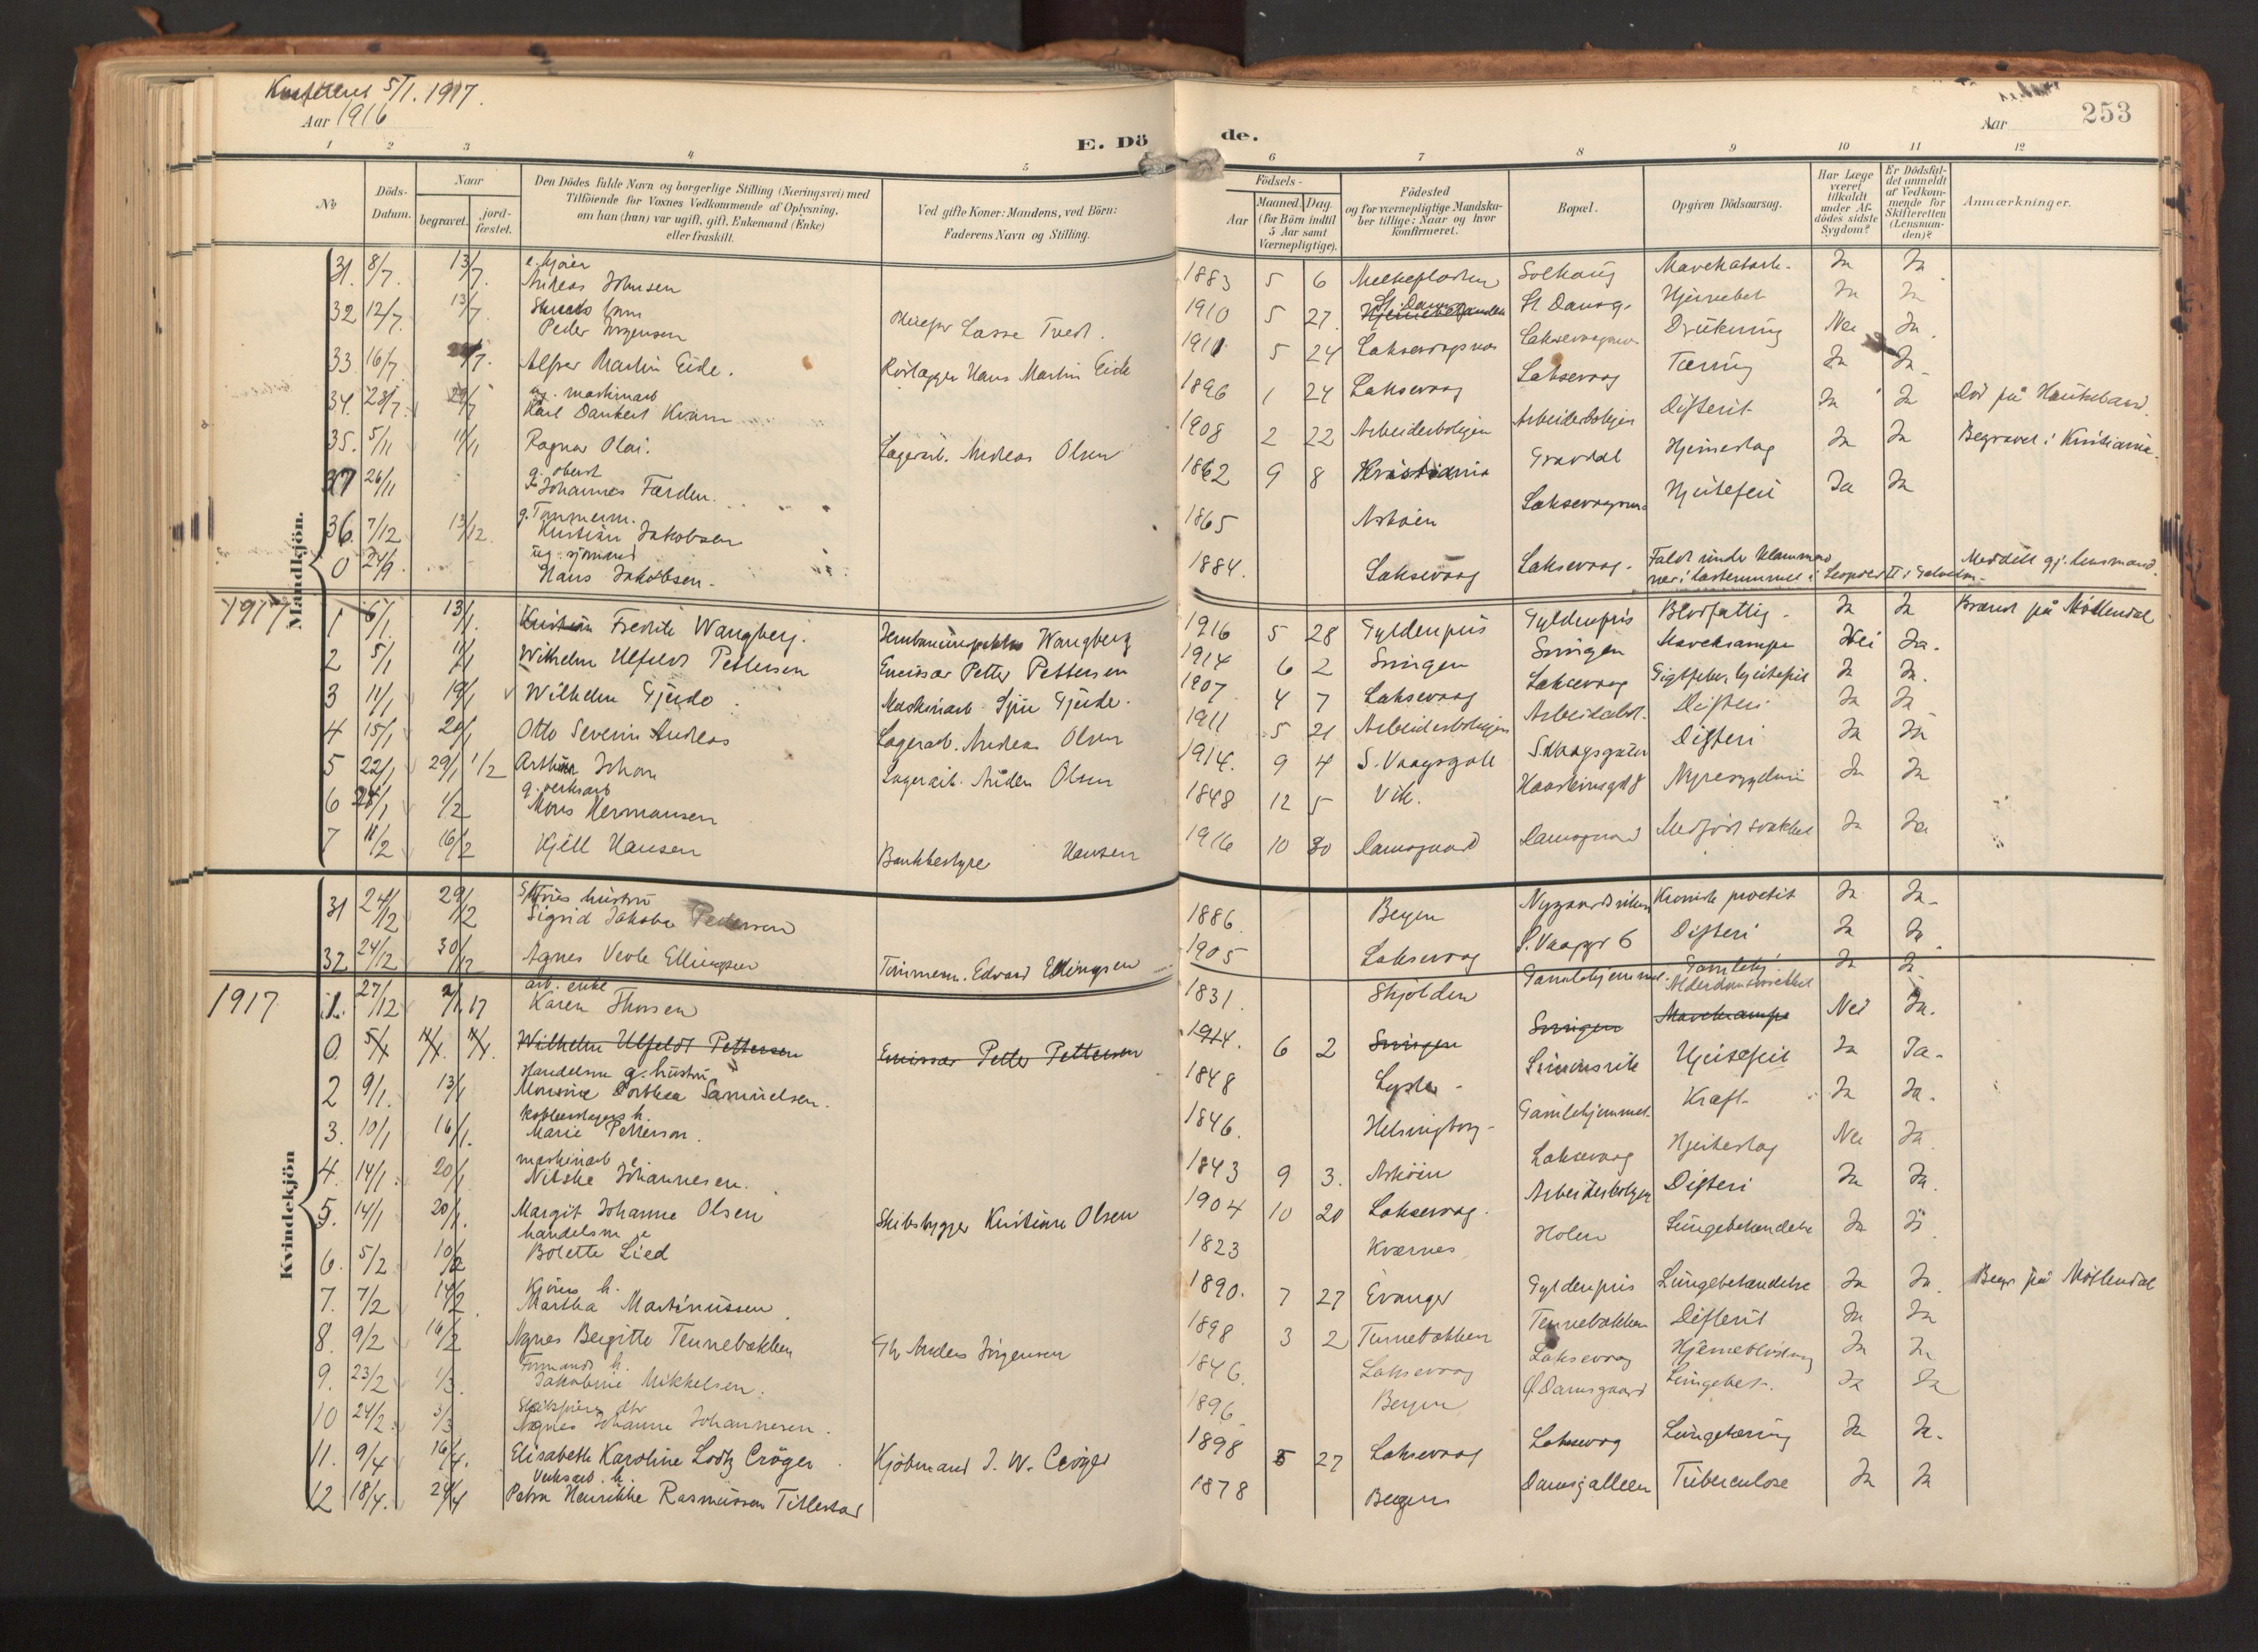 Konfereret 5/1. 1917.
Aar 1916
E. Dö de.
Aar
253
1 2 3 4 5 6 7 8 9 10 11 12
№
Döds-Datum.
Naar
begravet.
jord-fæstet.
Den Dödes fulde Navn og borgerlige Stilling (Næringsvei) med
Tilföiende for Voxnes Vedkommende af Oplysning,
om han (hun) var ugift, gift, Enkemand (Enke)
eller fraskilt.
Ved gifte Koner: Mandens, ved Börn:
Faderens Navn og Stilling.
Födsels-
Aar
Maaned. Dag.
(for Börn indtil
5 Aar samt
Værnepligtige).
Födested
og for værnepligtige Mandska-
ber tillige: Naar og hvor
konfirmeret.
Bopæl.
Opgiven Dödsaarsag.
Har Læge
været
tilkaldt
under Af-
dödes sidste
Sygdom?
Er Dödsfal-
det anmeldt
af Vedkom-
mende for
Skifteretten
(Lensman-
den)?
Anmærkninger.
Mandkjön.
31. 8/7. 13/7. Andreas Johnsen 1883 5 6 Solhaug Ja Ja
32 12/7. 13/7. Peder Jørgensen Lasse Tvedt. 1910 5 27 St. Damsg. Ja Ja
33. 16/7 Alfver Martin Eide. Rørlægger Hans Martin Eide 1911 5 24 Laksevaagnes Laksevaagnes Drukning Nei Ja
34. 28/7. ug. maskinarb
Karl Dankert Kvam 1896 1 24 Laksevaag Laksevaag Tæring Ja Ja
35. 5/11 11/11 Ragnar Olai. Lagerarb. Andreas Olsen 1908 2 22 Arbeiderboligen Arbeiderboligen Difterit Ja Ja Död på Haukeland.
37 26/11 g. oberst
Johannes Færden. 1862 9 8 Kristiania Gravdal Hjerneslag Ja Ja Begravet i Kristiania.
36. 7/12 13/12. g. Tømmerm.
Kristian Jakobsen 1865 Askøen Laksevaagnes Hjertefeil Ja Ja
0 24/9. ug. sjømand
Hans Jakobsen. 1884. Laksevaag Laksevaag. Leopold II i
1917
1 6/1. 13/1. Kristian Fredrik Wangberg. Wangberg 1916 5 28 Gyldenpris Gyldenpris Blodfattig. Ja Ja Brændt på Møllendal
2 5/1 11/1 Wilhelm Ulfeldt Pettersen Emissær Petter Pettersen 1914 6 2 Svingen Svingen Mavekrampe Nei Ja.
3 11/1 19/1 Wilhelm Gjerde. Maskinarb. Gjerde. 1907 4 7 Laksevaag Laksevaag Gigtfeber, hjertefeil Ja Ja.
4 15/1 20/1 Otto Severin Andreas Lagerarb. Andreas Olsen 1911 5 21 Arbeiderboligen Arbeiderbol. Difteri Ja Ja
5 22/1 29/1 1/2 Arthur Johan Lagerarb. Olsen 1914. 9 4 S. Vaagsgate S. Vaagsgaten Difteri Ja Ja
6 28/1 1/2 g. verksarb
Mons Hermansen 1848 12 5 Vik. Nyresygdom Ja Ja
7 11/2 16/2 Kjell Hansen Bankbestyre Hansen 1916 10 30 Damsgaard Damsgaard Medfødt svakhet Ja Ja
Kvindekjön
31 24/12 29/12 hustru
Sigrid Jakoba Pedersen 1886 Bergen Ja Ja.
32 24/12 30/12 Agnes Ellingsen Tømmerm. Edvard Ellingsen 1905 Laksevaag S. Vaagsgt 6 Difteri Ja Ja.
1917
1. 27/12 2/1 17 arb. enke
Karen Thorsen 1831 Skjolden Gamlehjemmet. Alderdomssvækkelse Ja Ja
0. 5/1 11/1. 11/1. Wilhelm Ulfeldt Pettersen Emissær Petter Pettersen 1914. 6 2 Svingen Svingen Mavekrampe Nei Ja.
2 9/1. 13/1 Handelsm g. hustru
Monsine Dorthea Samuelsen. 1848 Lyster Simonsvik Hjertefeil Ja Ja.
3. 10/1 16/1. Kobberslagers h.
Marie Petterson. 1846. Helsingborg Gamlehjemmet. Kræft. Ja Ja.
4. 14/1. 20/1 maskinarb e.
Nilske Johannesen. 1843 9 3. Askøen Laksevaag Hjerteslag Nei Ja
5. 14/1 20/1. Margit Johanne Olsen Skibsbygger Kristian Olsen 1904 10 20 Laksevaag. Arbeiderboligen Difteri Ja Ja.
6. 5/2 10/2 handelsm e
Bolette Lied 1823 Kværnes Holen Lungebetændelse Ja Ja
7. 7/2 14/2 Kjørers h.
Martha Martinussen. 1890. 7 27 Evanger Gyldenpris Lungebetændelse Ja Ja Begr på Møllendal
8. 9/2 16/2 Agnes Bergitte Tennebækken Anders Jørgensen 1898 3 2 Tennebækken Tennebækken Difterit Ja Ja
9. 23/2 1/3. Formands h.
Jakobine Mikkelsen. 1846. Laksevaag Laksevaag Hjerneblødning Ja Ja
10 24/2. 3/3 dtr
Agnes Johanne Johannesen. 1896. Bergen Ø. Damsgaard Lungebet. Ja Ja
11. 9/4 16/4. Elisabeth Karoline Lodtz Crøger Kjøbmand J. W. Crøger 1898 5 27 Laksevaag Laksevaag Lungetæring Ja Ja.
12 18/4. 24/4 Verksarb. h.
Petra Henrikke Rasmussen Titlestad 1878 Bergen Damsgalleen Tuberculose Ja Ja